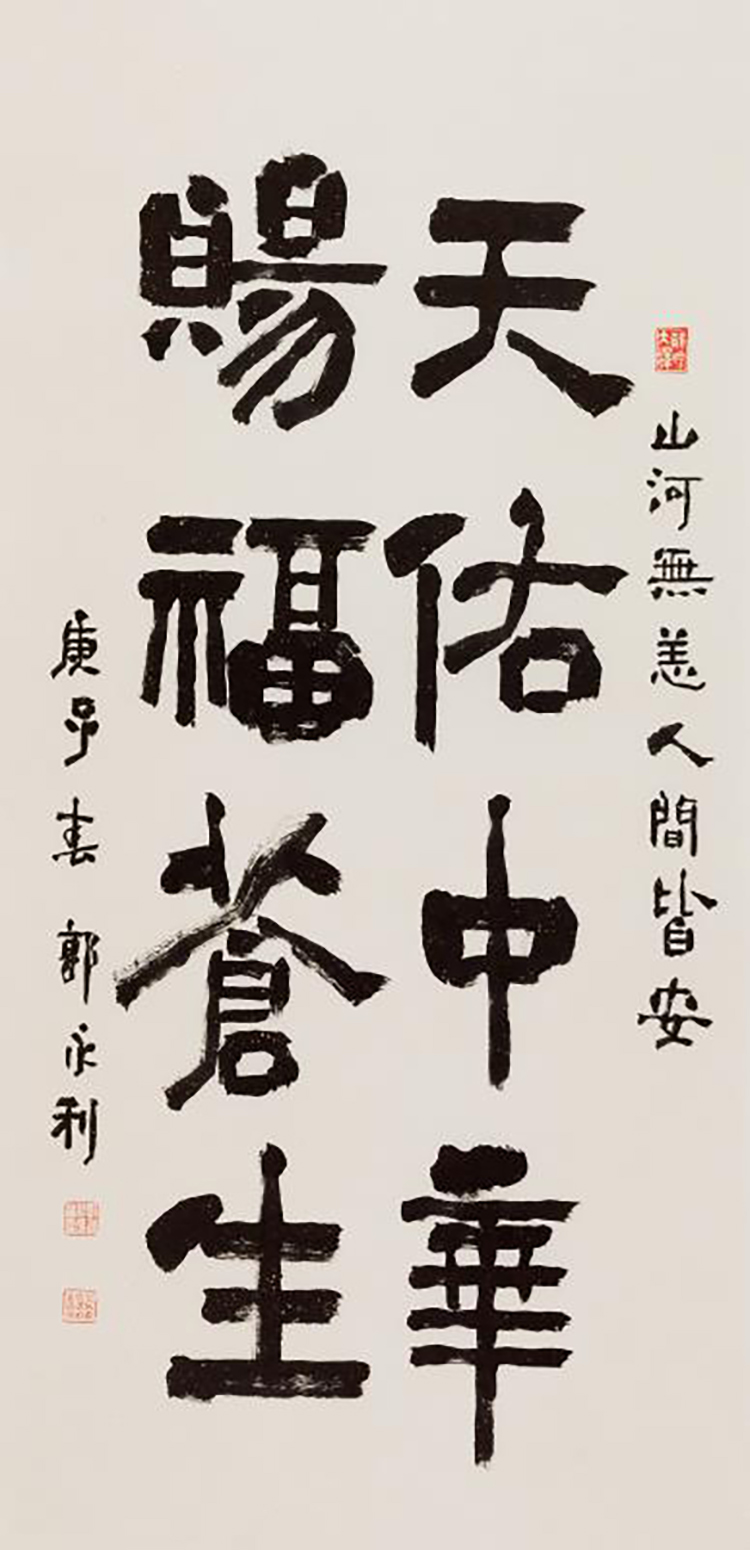 山河無恙人間皆安
天佑中華
賜福蒼生
庚子春 郭永利